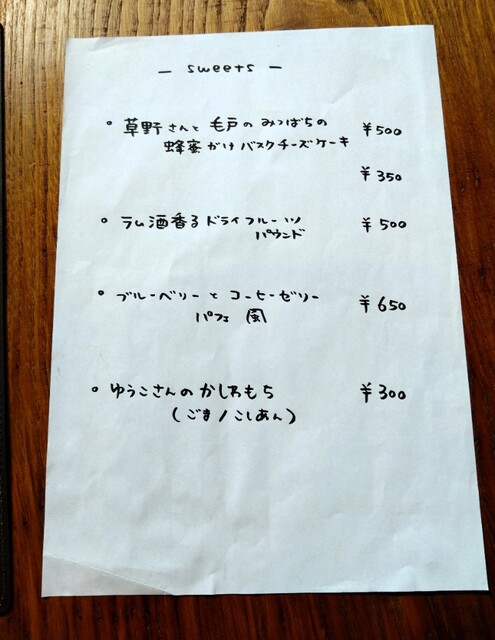 — sweets —
• 草野さんと毛戸のみつばちの ¥500
蜂蜜がけバスクチーズケーキ
¥350
• ラム酒香るドライフルーツ ¥500
パウンド
• ブルーベリーとコーヒーゼリー ¥650
パフェ風
• ゆうこさんのかしわもち ¥300
(ごま/こしあん)